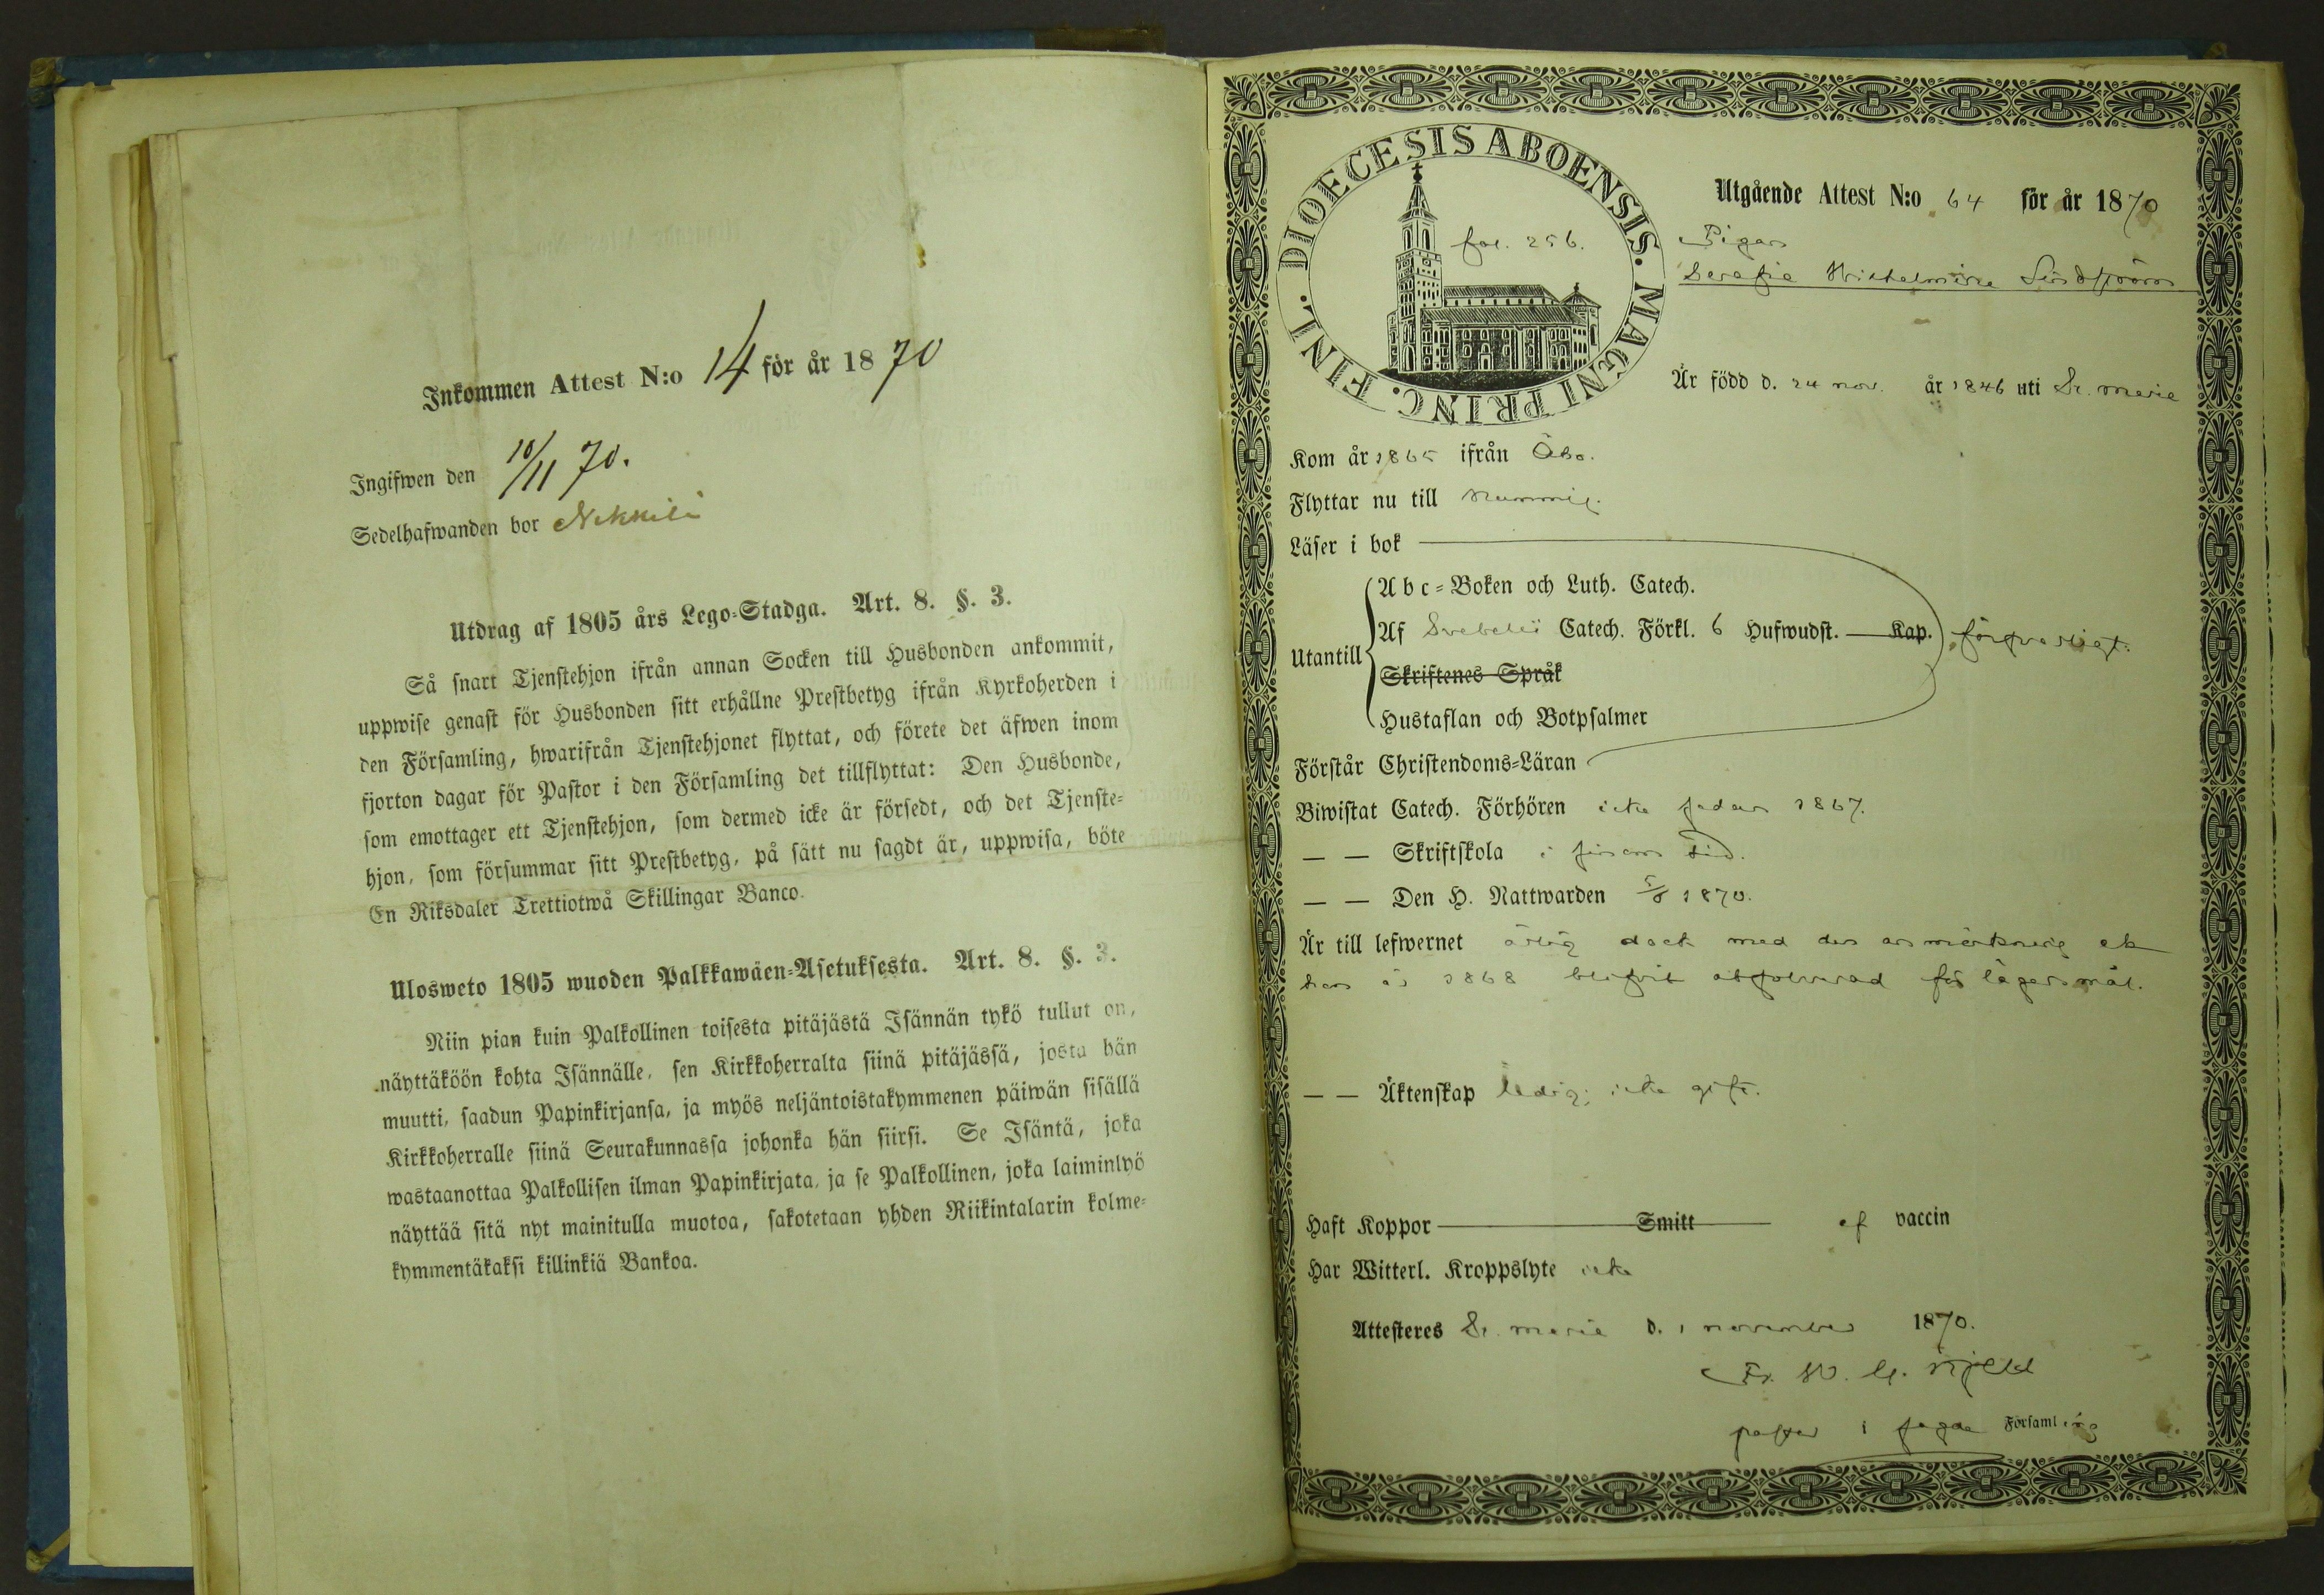 Inkommen Attest N:o 14 för år 1870
Ingifwen den 10/11 70.
Sedelhafwanden bor Nekkilä
Utdrag af 1805 års Lego-Stadga. Art. 8. §. 3.
Så snart Tjenstehjon ifrån annan Socken till Husbonden ankommit,
uppwise genast för Husbonden sitt erhållne Prestbetyg ifrån Kyrkoherden i
den Församling, hwarifrån Tjenstehjonet flyttat, och förete det äfwen inom
fjorton dagar för Pastor i den Församling det tillflyttat: Den Husbonde,
som emottager ett Tjenstehjon, som dermed icke är försedt, och det Tjenste-
hjon, som försummar sitt Prestbetyg, på sätt nu sagdt är, uppwisa, böte
En Riksdaler Trettiotwå Skillingar Banco.
Ulosweto 1805 wuoden Palkkawäen-Asetuksesta. Art. 8. §. 3.
Niin pian kuin Palkollinen toisesta pitäjästä Isännän tykö tullut on,
näyttäköön kohta Isännälle, sen Kirkkoherralta siinä pitäjässä, josta hän
muutti, saadun Papinkirjansa, ja myös neljäntoistakymmenen päiwän sisällä
Kirkkoherralle siinä Seurakunnassa johonka hän siirsi. Se Isäntä, joka
wastaanottaa Palkollisen ilman Papinkirjata, ja se Palkollinen, joka laiminlyö
näyttää sitä nyt mainitulla muotoa, sakotetaan yhden Riikintalarin kolme-
kymmentäkaksi killinkiä Bankoa.
DIOECESIS ABOENSIS. MAGNI PRINC. FINL.
fol. 256.
Utgående Attest N:o 64 för år 1870
Pigan
Serafia Wilhelmina Lindström
Är född d. 24 nov. år 1846 uti St. Marie
Kom år 1865 ifrån Åbo.
Flyttar nu till Nummis.
Läser i bok
Utantill
Abc-Boken och Luth. Catech.
Af Svebelii Catech. Förkl. 6 Hufwudst. Kap.
försvarligt.
Skriftenes Språk
Hustaflan och Botpsalmer
Förstår Christendoms-Läran
Biwistat Catech. Förhören icke sedan 1867.
— — Skriftskola i sinom tid.
— — Den H. Nattwarden 5/8 1870.
Är till lefwernet ärlig dock med den anmärkning att
hon år 1868 blifvit absolverad för lägersmål.
— — Äktenskap ledig; icke gift.
Haft Koppor Smitt af vaccin
Har Witterl. Kroppslyte icke
Attesteres St. Marie d. 1 november 1870.
Fr. W. G. Hjelt
pastor i sagde Församling